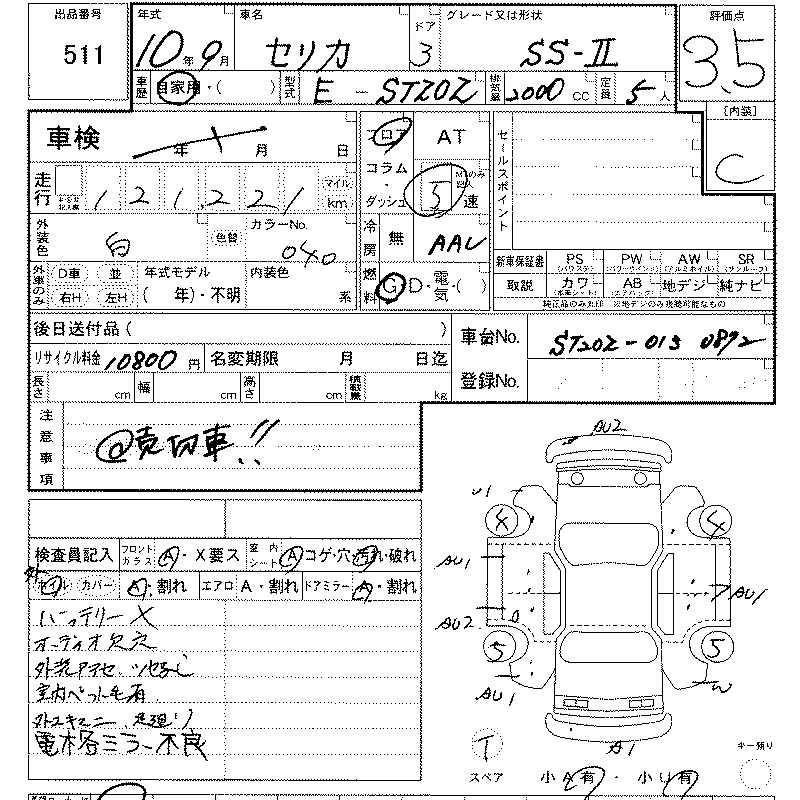 出品番号 511
年式 10年9月
車名 セリカ
ドア 3
グレード又は形状 SS-II
評価点 3.5
車歴 自家用・( )
型式 E - ST202
排気量 2000 CC
定員 5人
[内装] C
車検 年 月 日
フロア AT
コラム・ダッシュ 5速
セールスポイント
走行 121,221 マイル km
外装色 白 色替
カラーNo. 040
冷房 無 AAC
新車保証書 PS PW AW SR
取説 カワ AB 地デジ 純ナビ
純正品のみ丸印 ※地デジのみ視聴可能なもの
外車のみ D車 並 右H 左H
年式モデル ( 年)・不明
内装色 系
燃料 G D・電気・( )
後日送付品 ( )
車台No. ST202-0130892
リサイクル料金 10800円
名変期限 月 日迄
登録No.
長さ cm 幅 cm 高さ cm 積載量 kg
注意事項 @売切車!!
検査員記入 フロントガラス A・X要ス 室内シート A コゲ・穴・汚れ・破れ
ホイル カバー A・割れ エアロ A・割れ ドアミラー A・割れ
バッテリーX
オーディオ欠穴
室内ペット毛有
電格ミラー不良
AU2
U1
4
4
AU1
AU1
AU2
5
5
AU1
W
A1
T
スペア
小A有・小U有
キー預り